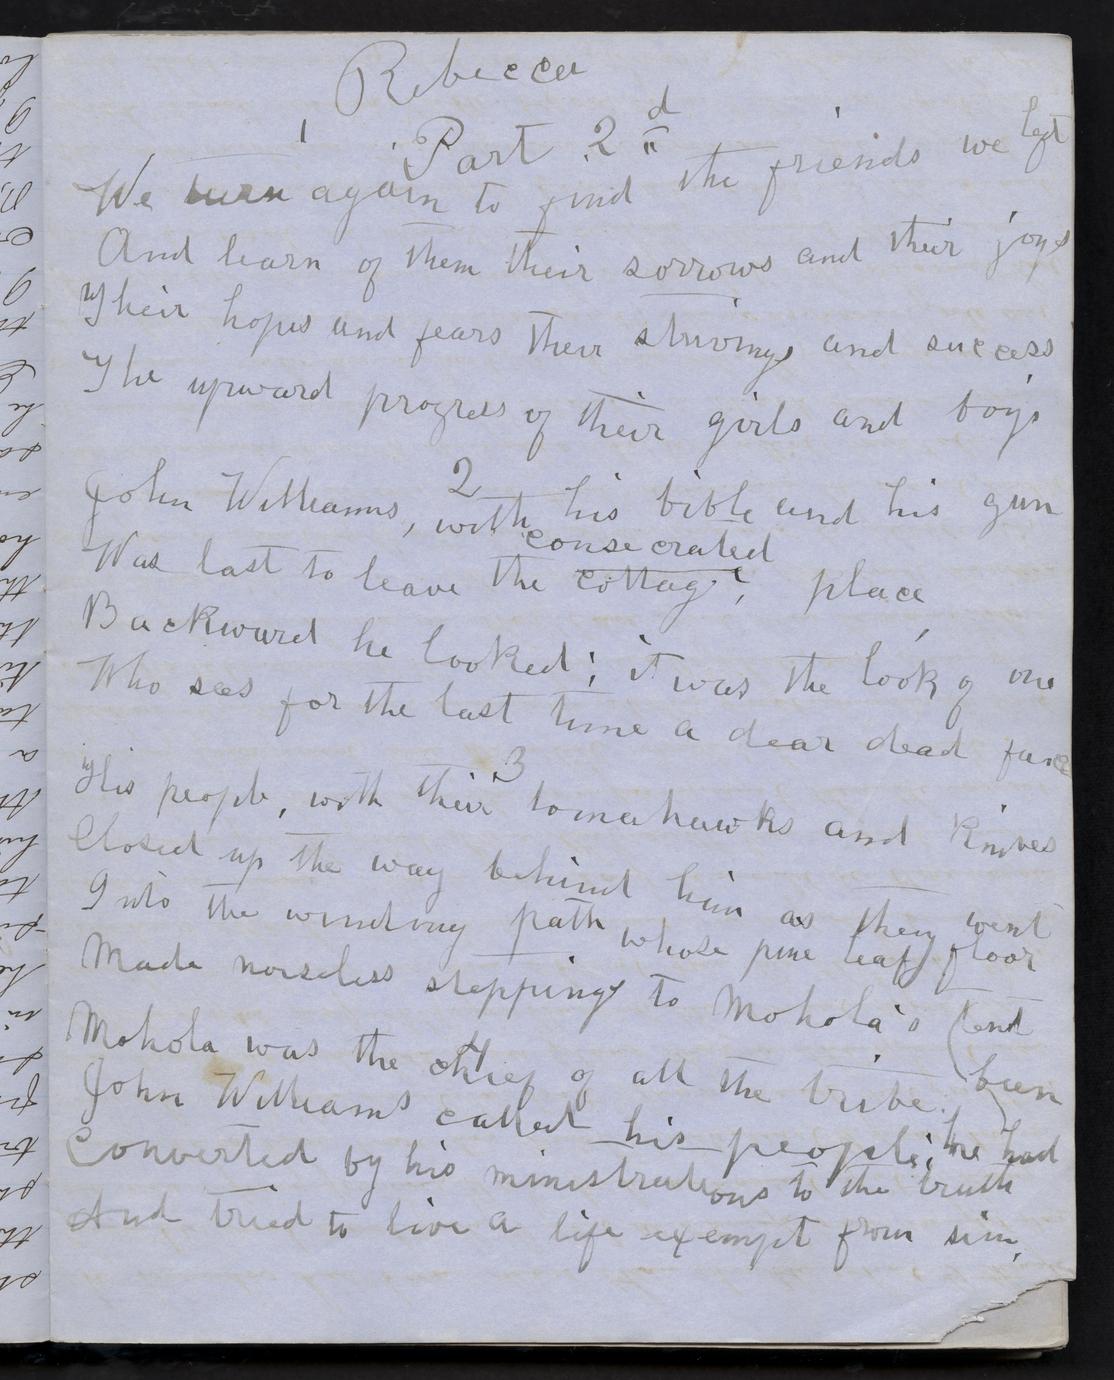 Rebecca
Part 2d
1
We turn again to find the friends we left
And learn of them their sorrows and their joys
Their hopes and fears their strivings and success
The upward progress of their girls and boys
2
John Williams, with his bible and his gun
consecrated
Was last to leave the cottage, place
Backward he looked; it was the look of one
Who sees for the last time a dear dead face
3
His people, with their tomahawks and knives
Closed up the way behind him as they went
Into the winding path whose pine leafy floor
Made noiseless stepping to Mohola's tent
4
Mohola was the chief of all the tribe.
John Williams called his people; he had been
Converted by his ministrations to the truth
And tried to live a life exempt from sin,